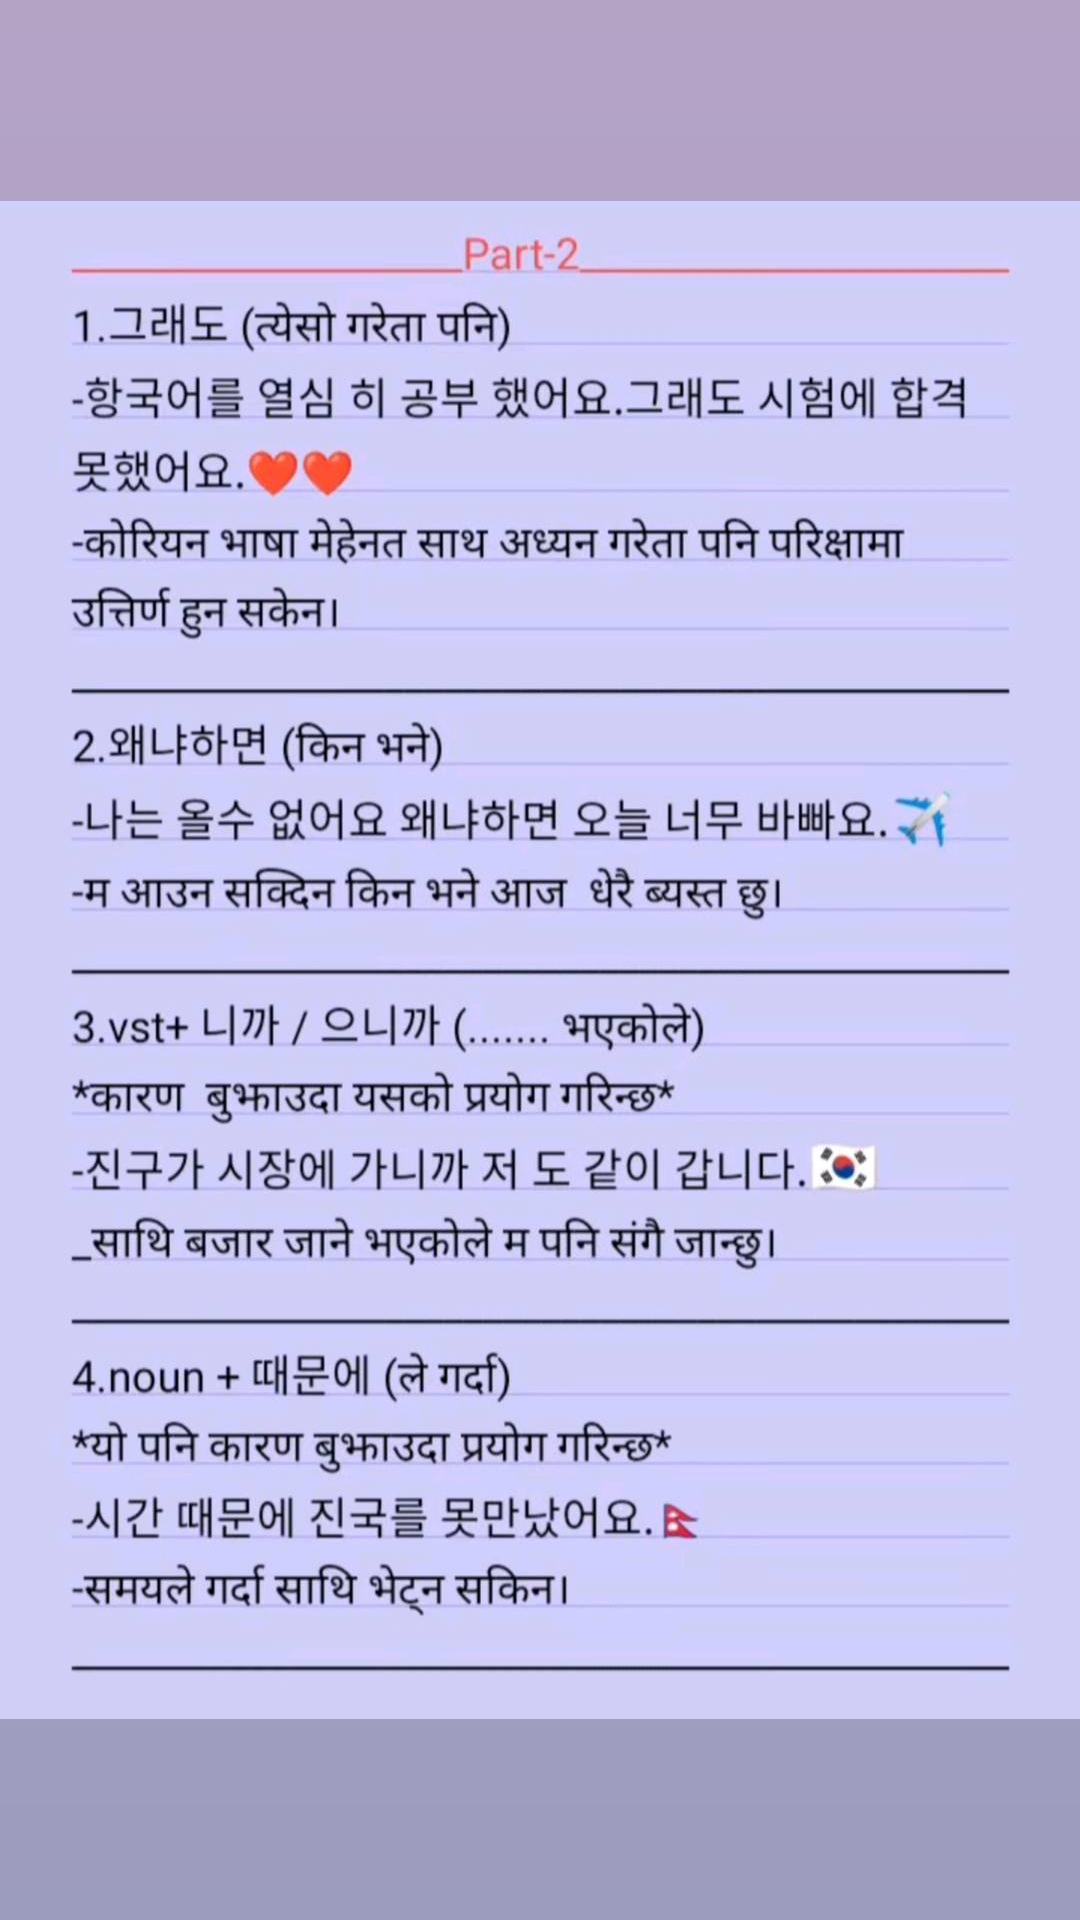 Part-2
1.그래도 (त्येसो गरेता पनि)
-항국어를 열심 히 공부 했어요.그래도 시험에 합격
못했어요.❤️❤️
-कोरियन भाषा मेहेनत साथ अध्यन गरेता पनि परिक्षामा
उत्तिर्ण हुन सकेन।
2.왜냐하면 (किन भने)
-나는 올수 없어요 왜냐하면 오늘 너무 바빠요.✈️
-म आउन सक्दिन किन भने आज धेरै ब्यस्त छु।
3.vst+ 니까 / 으니까 (....... भएकोले)
*कारण बुझाउदा यसको प्रयोग गरिन्छ*
-진구가 시장에 가니까 저 도 같이 갑니다.🇰🇷
_साथि बजार जाने भएकोले म पनि संगै जान्छु।
4.noun + 때문에 (ले गर्दा)
*यो पनि कारण बुझाउदा प्रयोग गरिन्छ*
-시간 때문에 진국를 못만났어요.🇳🇵
-समयले गर्दा साथि भेट्न सकिन।